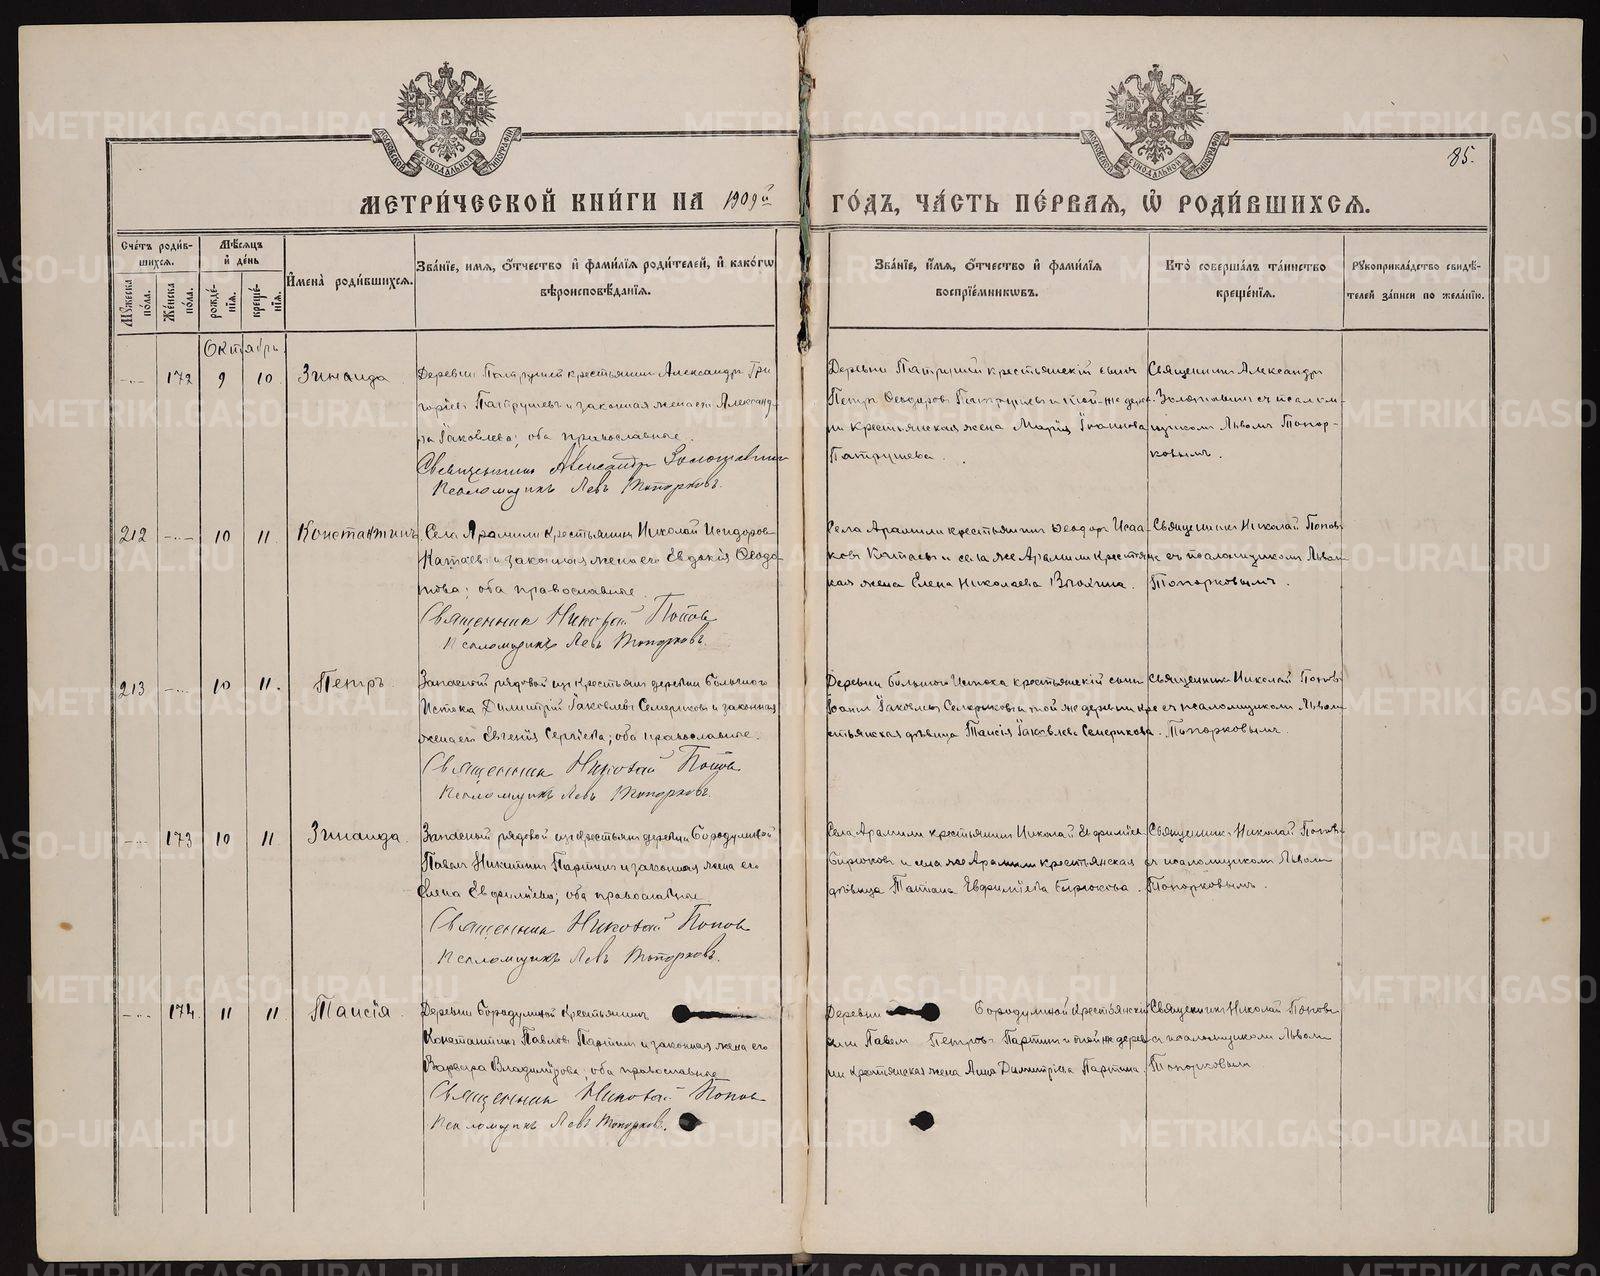 МОСКОВСКОЙ СѴНОДАЛЬНОЙ ТИПОГРАФІИ
МОСКОВСКОЙ СѴНОДАЛЬНОЙ ТИПОГРАФІИ
85.
МЕТРИ́ЧЕСКОЙ КНИ́ГИ НА 1909й ГО́ДЪ, ЧА́СТЬ ПЕ́РВАЯ, Ѡ РОДИ́ВШИХСЯ.
Сче́тъ роди́вшихся.
Му́жеска по́ла.
Же́нска по́ла.
Мѣ́сяцъ и҆ де́нь
рожде́нїя.
креще́нїя.
И҆мена̀ роди́вшихся.
Зва́нїе, и҆мя, ѻ҆́тчество и҆ фами́лїя роди́телей, и҆ како́гѡ вѣроисповѣ́данїя.
Зва́нїе, и҆мя, ѻ҆́тчество и҆ фами́лїя воспрїе́мникѡвъ.
Кто̀ соверша́лъ та́инство креще́нїя.
Рꙋкоприкла́дство свидѣ́телей за́писи по жела́нїю.
Октябрь.
172 9 10 Зинаида
Деревни Патрушей крестьянинъ Александръ Гри
горіевъ Патрушевъ и законная жена его Александ-
ра Іаковлева; оба православные.
Священникъ Александръ
Псаломщикъ Левъ Топорковъ.
Деревни Патрушей крестьянскій сынъ
Петръ Ѳеодоровъ Патрушевъ и той-же дерев-
ни крестьянская жена Марія Іоаннова
Патрушева.
Священникъ Александръ
съ псалом-
щикомъ Львомъ Топор-
ковымъ.
212 10 11 Константинъ
Села Арамили крестьянинъ Николай Исидоровъ
Катаевъ и законная жена его Евдокія Ѳеодо-
това; оба православные.
Священникъ Николай Поповъ
Псаломщикъ Левъ Топорковъ.
Села Арамили крестьянинъ Ѳеодоръ Исаа-
ковъ Катаевъ и села же Арамили крестьянс-
кая жена Елена Николаева
Священникъ Николай Поповъ
съ псаломщикомъ Львомъ
Топорковымъ.
213 10 11. Петръ.
Запасной рядовой изъ крестьянъ деревни Большого
Истока Димитрій Іаковлевъ Семериковъ и законная
жена его Евгенія Сергіева; оба православные.
Священникъ Николай Поповъ
Псаломщикъ Левъ Топорковъ.
Деревни Большого Истока крестьянскій сынъ
Іоаннъ Іаковлевъ Семериковъ и той же деревни кре
стьянская дѣвица Таисія Іаковлева Семерикова.
Священникъ Николай Поповъ
съ псаломщикомъ Львомъ
Топорковымъ.
173 10 11 Зинаида.
Запасный рядовой изъ крестьянъ деревни Бородулиной
Павелъ Никитинъ Партинъ и законная жена его
Елена Евфиміева; оба православные
Священникъ Николай Поповъ
Псаломщикъ Левъ Топорковъ.
Села Арамили крестьянинъ Николай Евфиміевъ
Бирюковъ и села же Арамили крестьянская
дѣвица Татіана Евфиміева Бирюкова.
Священникъ Николай Поповъ
съ псаломщикомъ Львомъ
Топорковымъ.
174 11 11 Таисія
Деревни Бородулиной крестьянинъ
Константинъ Павловъ Партинъ и законная жена его
Варвара Владимірова; оба православные
Священникъ Николай Поповъ
Псаломщикъ Левъ Топорковъ.
Деревни Бородулиной крестьянскій
сынъ Павелъ Петровъ Партинъ и той же дерев-
ни крестьянская жена Анна Димитріева Партина.
Священникъ Николай Поповъ
съ псаломщикомъ Львомъ
Топорковымъ
METRIKI.GASO-URAL.RU